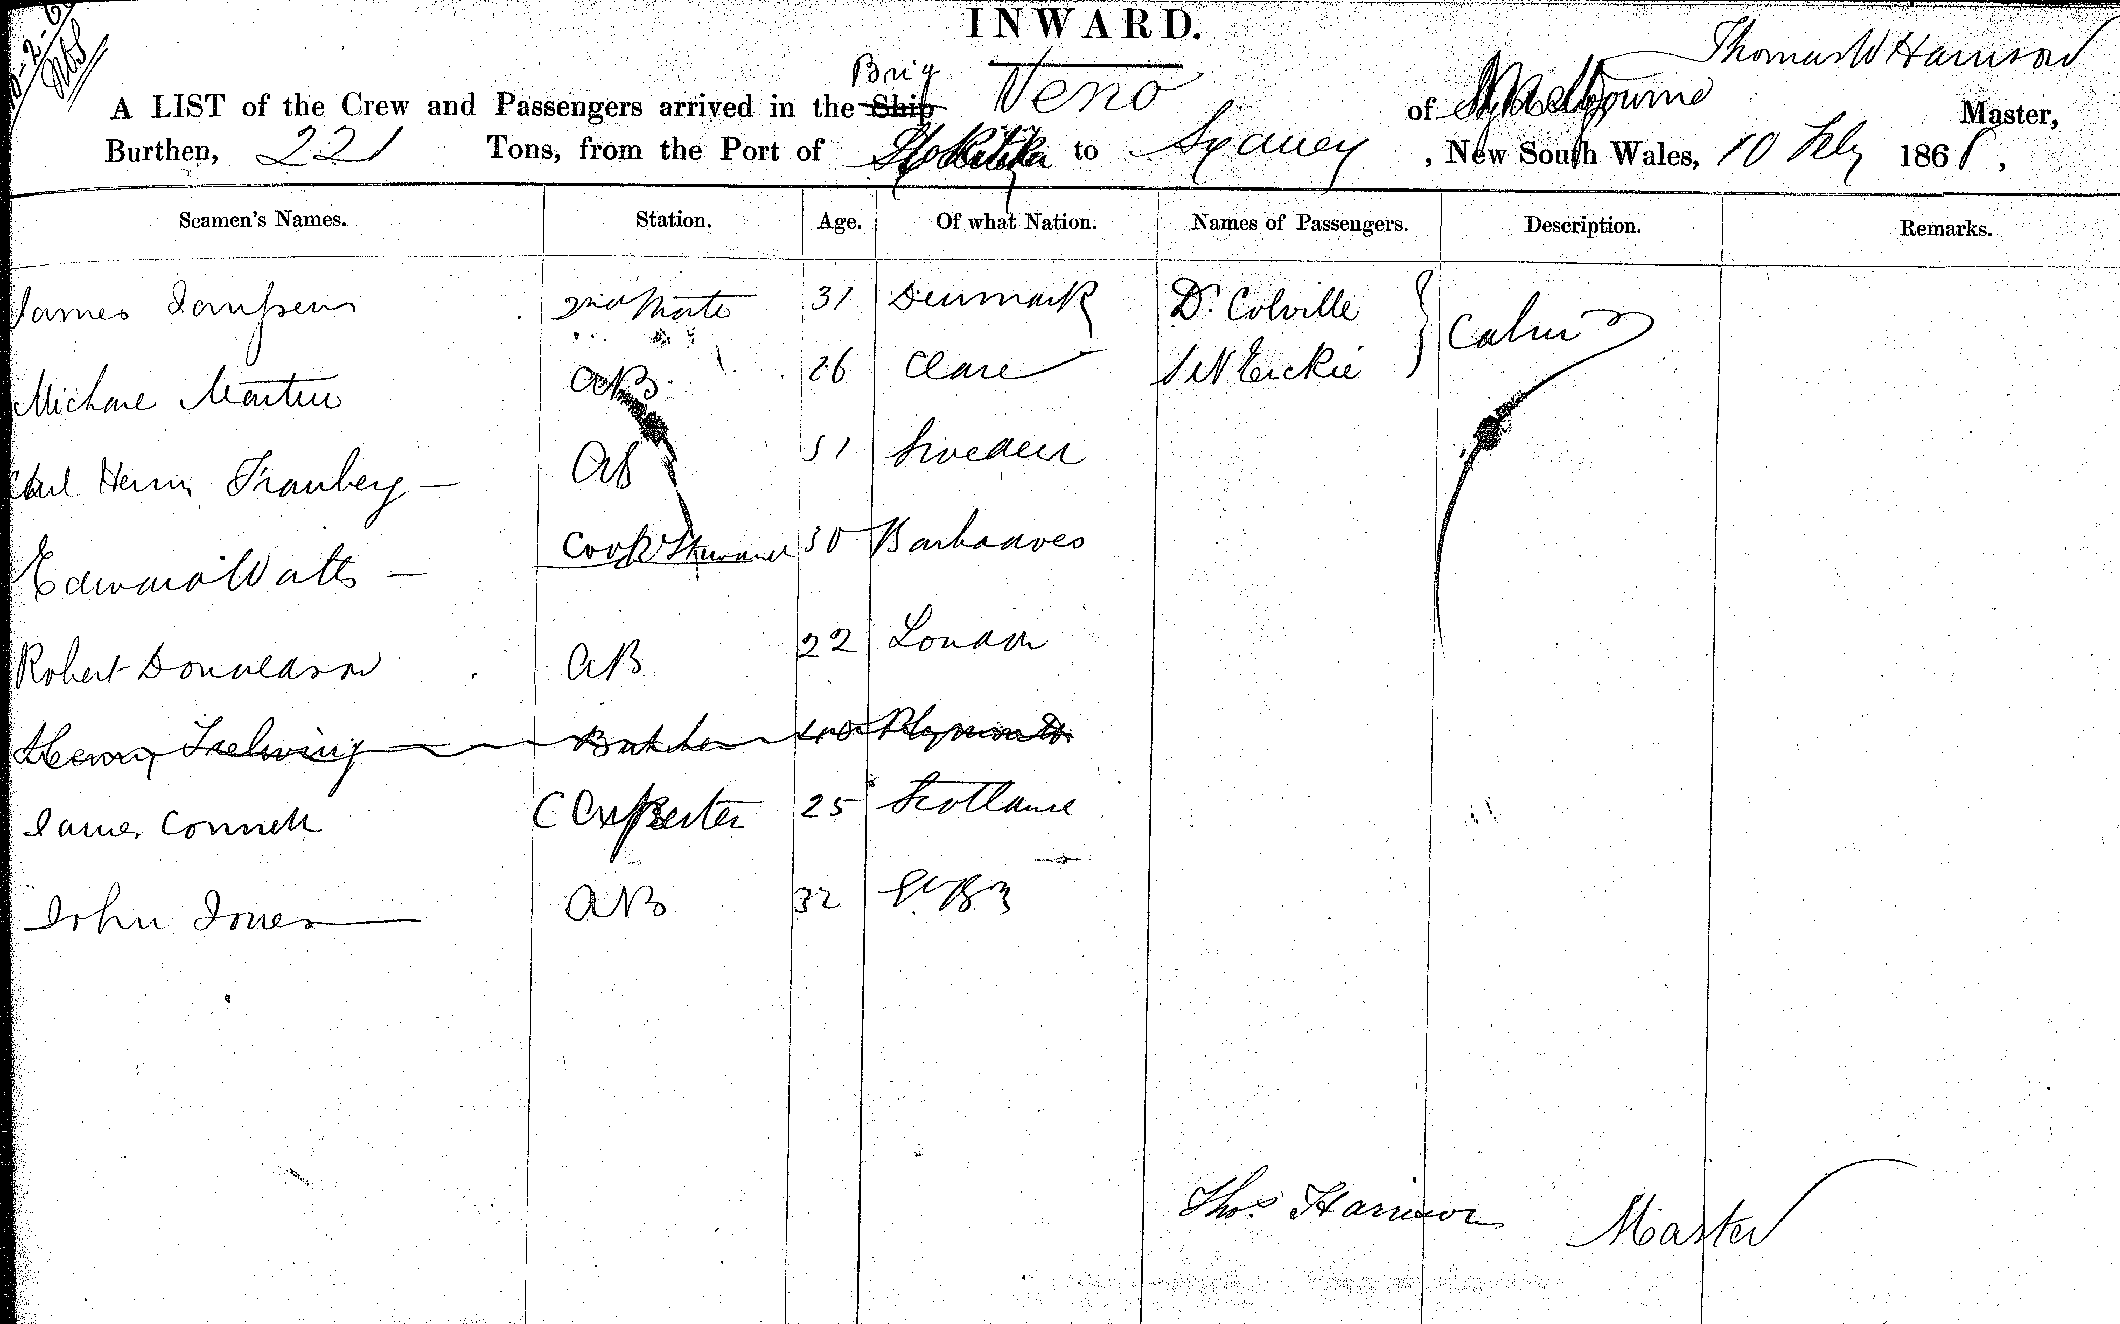 INWARD.
Thomas W Harrison
A LIST of the Crew and Passengers arrived in the Ship Brig Neno of Melbourne Master,
Burthen, 221 Tons, from the Port of Hokitika to Sydney, New South Wales, 10 Feby 1868,
Seamen's Names. Station. Age. Of what Nation. Names of Passengers. Description. Remarks.
James 2nd Mate 31 Denmark Dr. Colville Cabin
Michael Martin AB 26 Clare
Carl Henry Tranberg — AB 51 Sweden
Edward Watts — Cook & Steward 30 Barbadoes
Robert Donaldson AB 22 London
Henry Butcher 40 Plymouth
James Connell Carpenter 25 Scotland
John Jones AB 32
Thos. Harrison Master